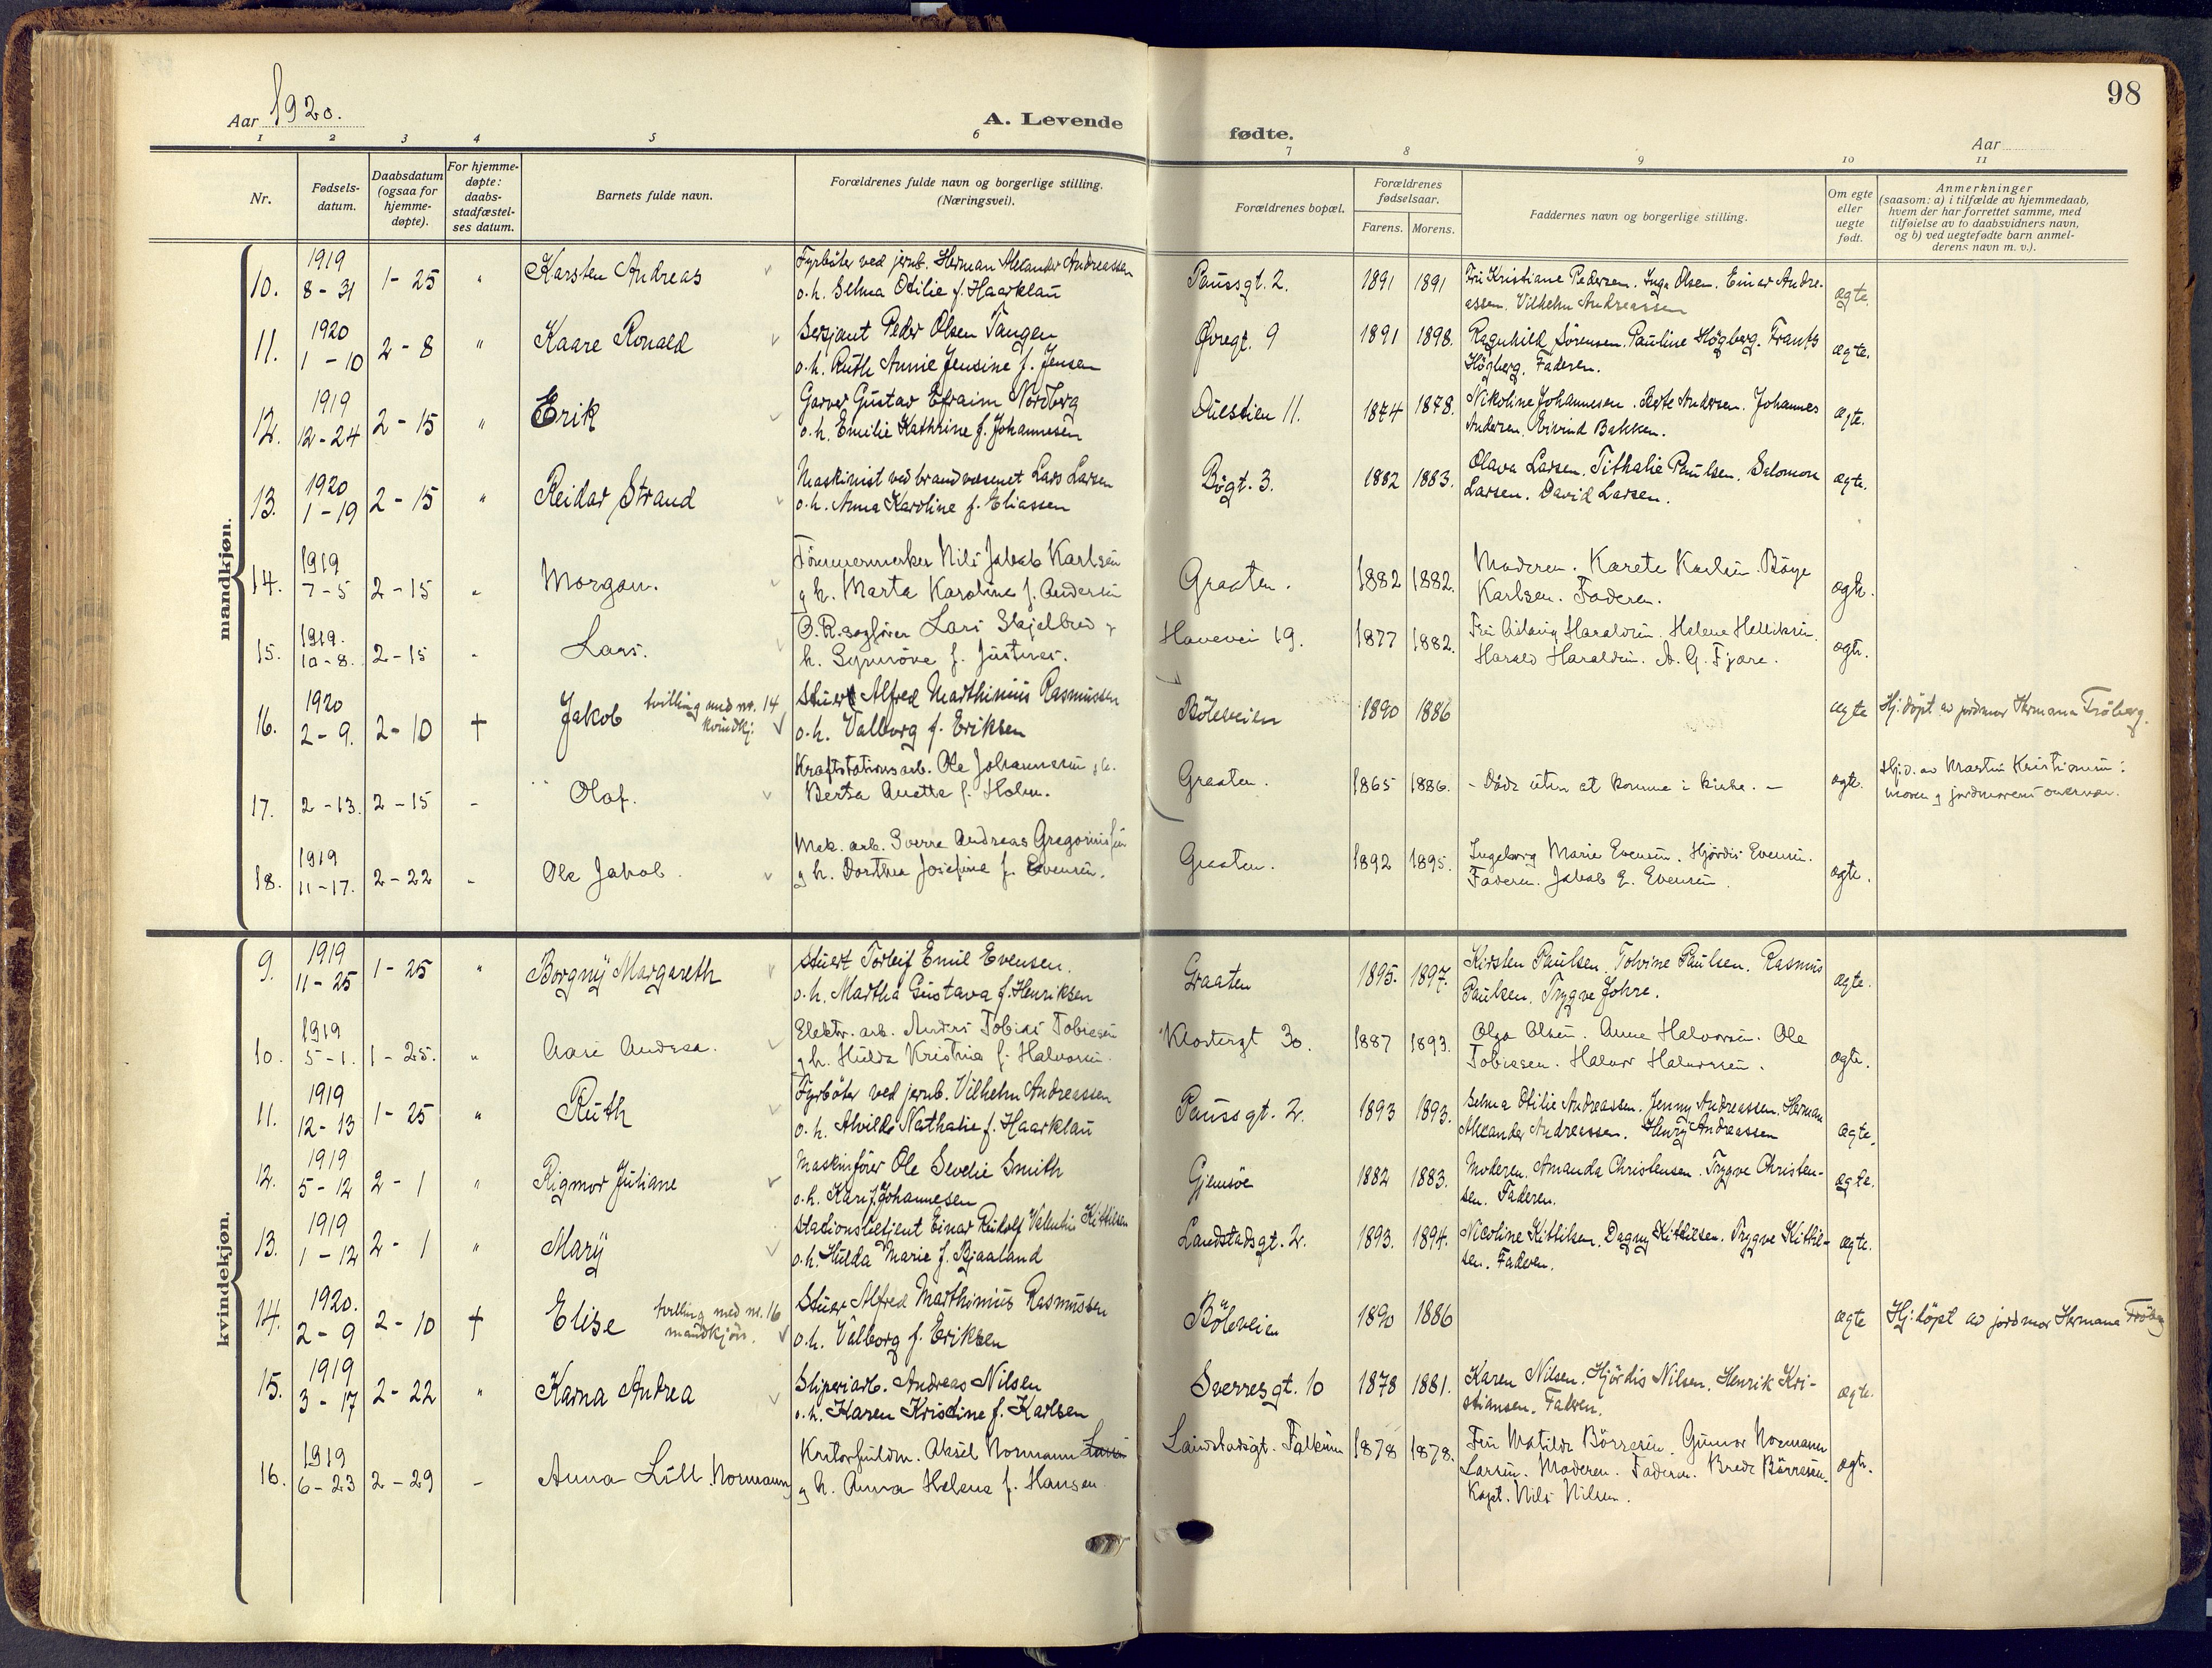 98
Aar 1920.
A. Levende
fødte.
Aar
1 2 3 4 5 6 7 8 9 10 11
Nr.
Fødsels-
datum.
Daabsdatum
(ogsaa for
hjemme-
døpte).
For hjemme-
døpte:
daabs-
stadfæstel-
ses datum.
Barnets fulde navn.
Forældrenes fulde navn og borgerlige stilling.
(Næringsvei).
Forældrenes bopæl.
Forældrenes
fødselsaar.
Farens. Morens.
Faddernes navn og borgerlige stilling.
Om egte
eller
uegte
født.
Anmerkninger
(saasom: a) i tilfælde av hjemmedaab,
hvem der har forrettet samme, med
tilføielse av to daabsvidners navn,
og b) ved uegtefødte barn anmel-
derens navn m. v.).
mandkjøn.
10. 1919 8-31 1-25 " Karsten Andreas
Fyrbøter ved jernb. Herman Alexander Andreassen
o.h. Selma Otilie f. Haarklau
Paussgt. 2. 1891 1891
Fru Kristiane Pedersen. Inga Olsen. Einar Andre-
assen. Vilhelm Andreassen
ægte.
11. 1920 1-10 2-8 " Kaare Ronald
Sersjant Peder Olsen Tangen
o.h. Ruth Annie Jensine f. Jensen
Øvregt. 9 1891 1898.
Ragnhild Sørensen. Pauline Högberg. Frants
Högberg. Faderen.
ægte.
12. 1919 12-24 2-15 " Erik
Garver Gustav Efraim Nordberg
o.h. Emilie Kathrine f. Johannesen
Duestien 11. 1874 1878.
Nikoline Johannesen. Berte Andersen. Johannes
Andersen. Eivind Bakken.
ægte.
13. 1920 1-19 2-15 " Reidar Strand
Maskinist ved brandvæsenet Lars Larsen
o.h. Anna Karoline f. Eliassen
Bögt. 3. 1882 1883.
Olava Larsen. Tithalie Paulsen. Salomon
Larsen. David Larsen.
ægte.
14. 1919 7-5 2-15 " Morgan.
Tömmermerker Nils Jakob Karlsen
g h. Marta Karoline f. Andersen
Graaten. 1882 1882.
Moderen. Karete Karlsen. Börge
Karlsen. Faderen.
egte.
15. 1919. 10-8. 2-15 " Lars.
O.R.sagfører Lars Skjelbred g
h. Synnöve f. Justnes.
Havevei 19. 1877 1882.
Fru Aslaug Haraldsen. Helene Helliksen.
Harald Haraldsen. A. G. Fjære.
egte.
16. 1920 2-9. 2-10 + Jakob tvilling med nr. 14
kvindkj:
Stuert Alfred Marthinius Rasmussen
o.h. Valborg f. Eriksen
Böleveien 1890 1886
ægte Hj: döpt av jordmor Hermana Fröberg.
17. 2-13. 2-15 - Olaf.
Kraftstationsarb. Ole Johannesen g h.
Berta Anette f. Holm.
Graaten. 1865 1886.
- Döde uten at komme i kirke. -
egte. Hj.d. av Martin Kristiansen:
moren g jordmorens nærvær.
18. 1919 11-17. 2-22 - Ole Jakob.
Mek. arb. Sverre Andreas Gregoriussen
g h. Dorthea Josefine f. Evensen.
Graaten. 1892 1895.
Ingeborg Marie Evensen. Hjördis Evensen.
Faderen. Jakob E. Evensen.
egte.
kvindekjøn.
9. 1919 11-25 1-25 " Borgny Margareth
Stuert Torleif Emil Evensen.
o.h. Martha Gustava f. Henriksen
Graaten 1895. 1897.
Kirsten Paulsen. Tolvine Paulsen. Rasmus
Paulsen. Trygve Johre.
ægte.
10. 1919 5-1. 1-25. " Aase Andrea.
Elektr. arb. Anders Tobias Tobiesen
g h. Hulda Kristine f. Halvorsen.
Klostergt 30. 1887 1893.
Olga Olsen. Anne Halvorsen. Ole
Tobiesen. Halvor Halvorsen.
egte.
11. 1919 12-13 1-25 " Ruth
Fyrböter ved jernb. Vilhelm Andreassen
o.h. Alvilde Nathalie f. Haarklau
Paussgt. 2. 1893 1893.
Selma Otilie Andreassen. Jenny Andreassen. Herman
Alexander Andreassen. Henry Andreassen
ægte.
12. 1919 5-12 2-1 " Rigmor Juliane
Maskinfører Ole Sevelie Smith
o.h. Kari f. Johannesen
Gjemsöe 1882 1883.
Moderen. Amanda Christensen. Trygve Christen-
sen. Faderen.
ægte.
13. 1919 1-12 2-1 " Mary
Stationsbetjent Einar Rudolf Valentin Kittilsen
o.h. Hulda Marie f. Bjaaland
Landstadsgt. 2. 1893. 1894.
Nicoline Kittilsen. Dagny Kittilsen. Trygve Kittil-
sen. Faderen.
ægte.
14. 1920. 2-9 2-10 + Elise tvilling med nr. 16
mandkjön.
Stuer Alfred Marthinius Rasmussen
o.h. Valborg f. Eriksen
Böleveien 1890 1886
ægte Hj: döpt av jordmor Hermana Fröberg
15. 1919 3-17 2-22 " Karna Andrea
Sliperiarb. Andreas Nilsen
o.h. Karen Kristine f. Karlsen
Sverresgt. 10 1878 1881.
Karen Nilsen. Hjördis Nilsen. Henrik Kri-
stiansen. Faderen.
ægte.
16. 1919 6-23 2-29 - Anna Lill. Normann
Kontorfuldm. Aksel Normann Larsen
g h. Anna Helene f. Hansen.
Landstadsgt. Falkum 1878 1878.
Fru Matilde Börresen. Gunvor Normann
Larsen. Moderen. Faderen. Brede Börresen.
Kapt. Nils Nilsen.
egte.